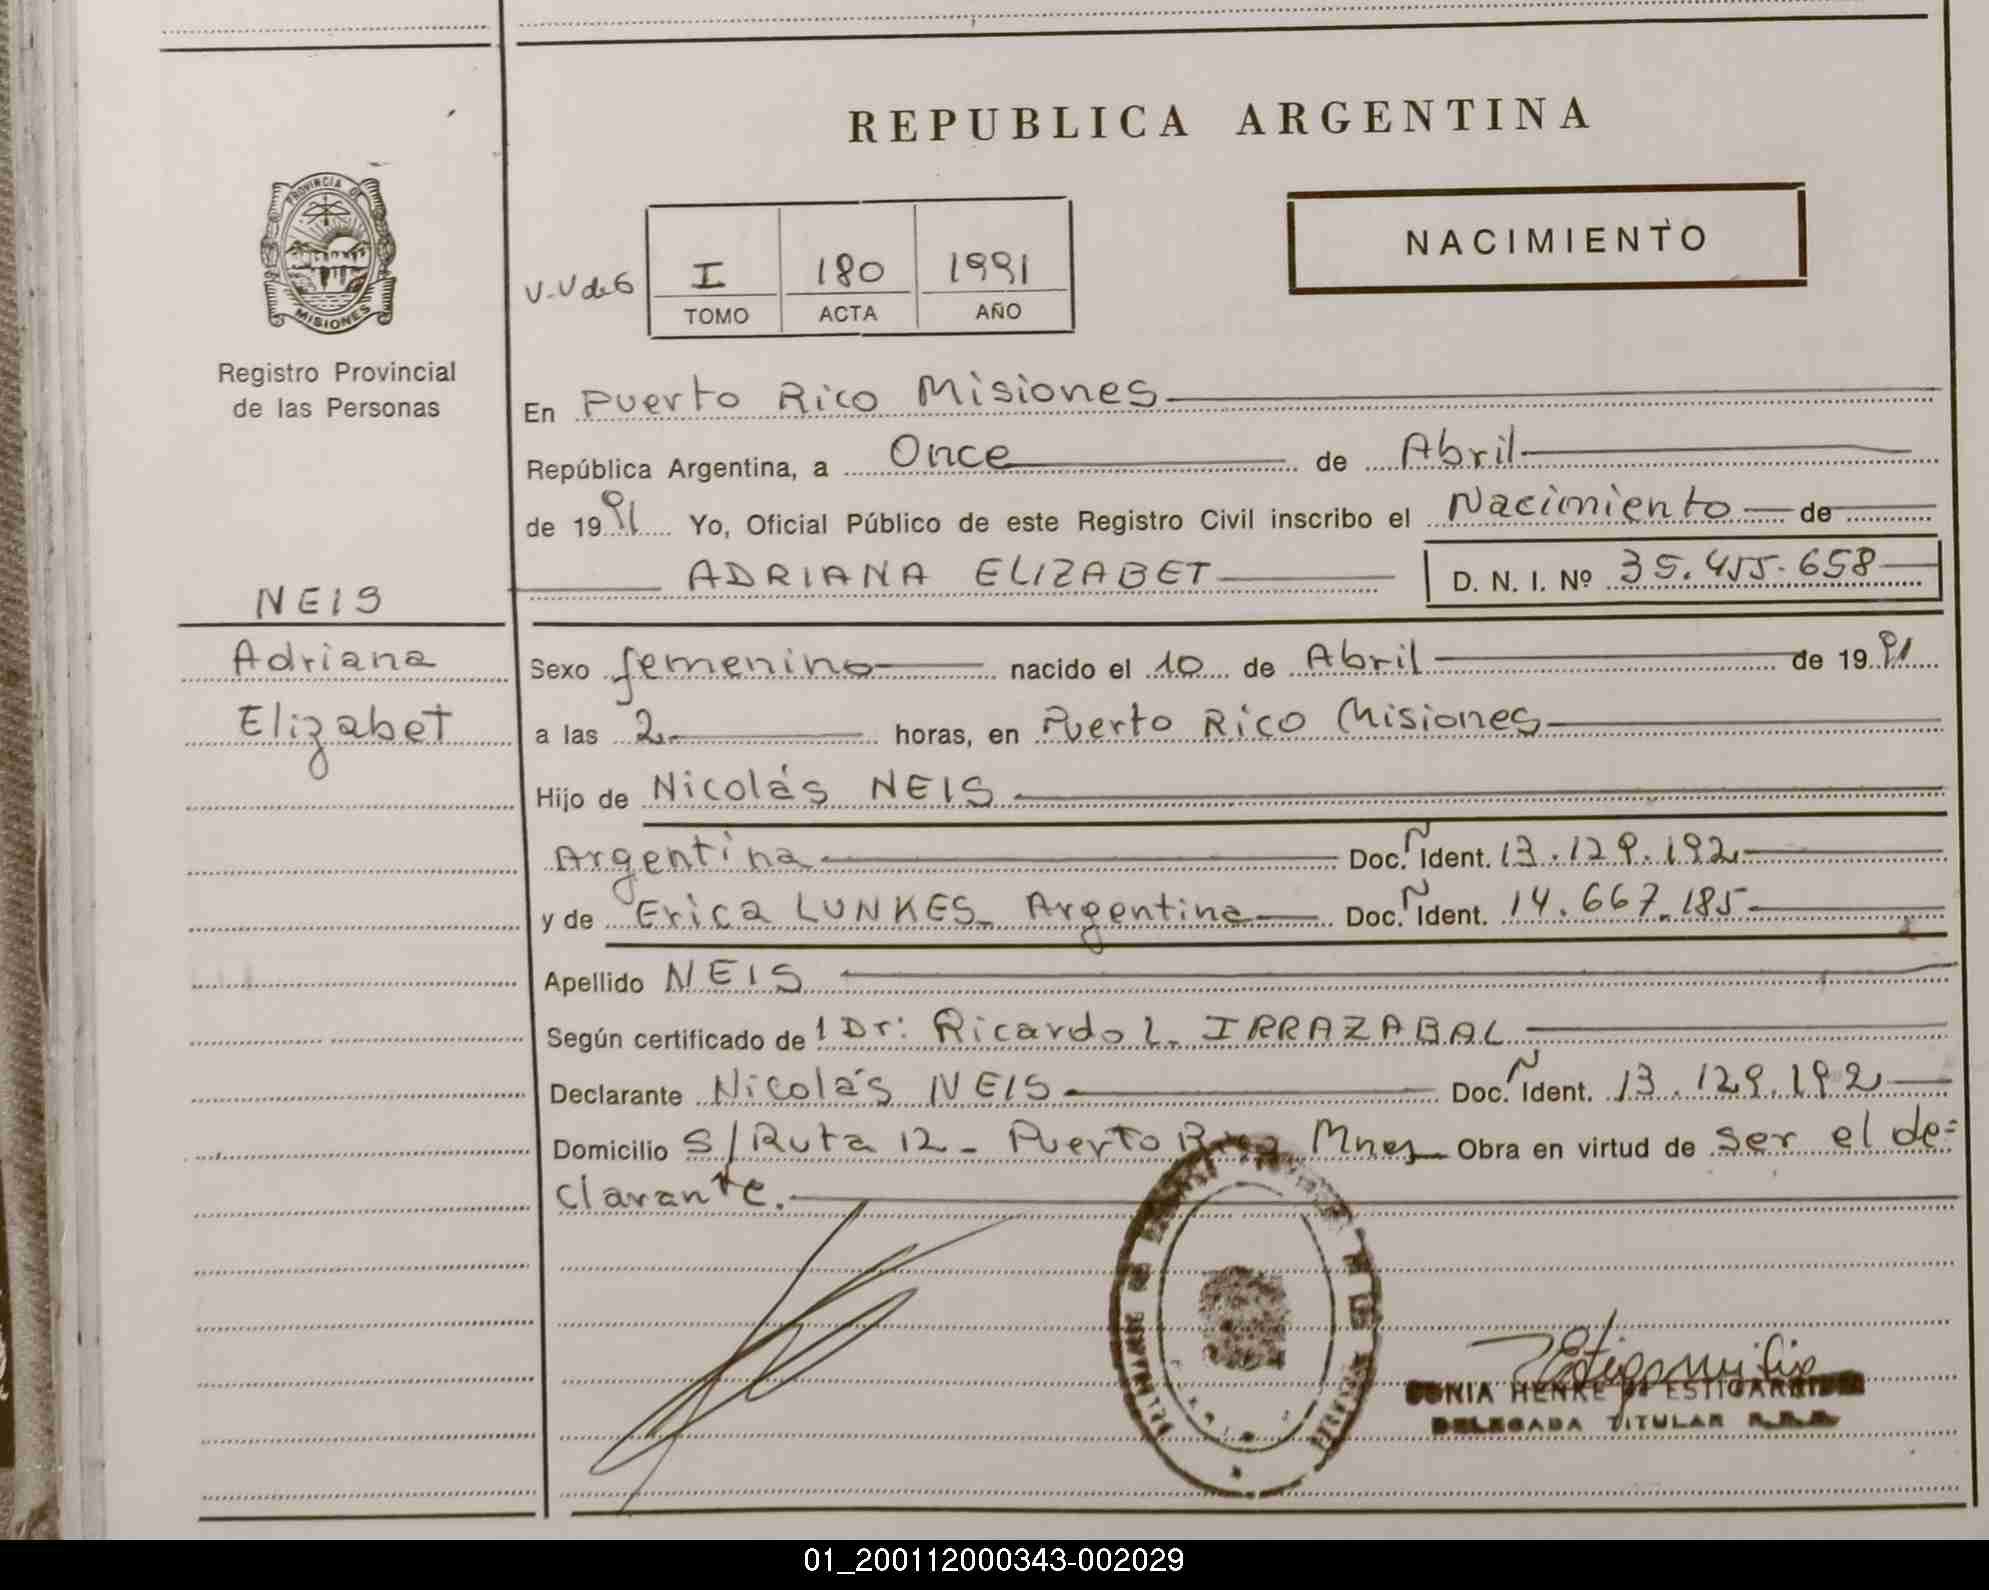 REPUBLICA ARGENTINA
PROVINCIA DE
MISIONES
Registro Provincial
de las Personas
NACIMIENTO
I 180 1991
TOMO ACTA AÑO
En Puerto Rico Misiones
República Argentina, a Once de Abril
de 1991 Yo, Oficial Público de este Registro Civil inscribo el Nacimiento de
ADRIANA ELIZABET D. N. I. Nº 35.455.658
NEIS
Adriana
Elizabet
Sexo femenino nacido el 10 de Abril de 1991
a las 2 horas, en Puerto Rico Misiones
Hijo de Nicolás NEIS
Argentina Doc. Ident. 13.129.192
y de Erica LUNKES Argentina Doc. Ident. 14.667.185
Apellido NEIS
Según certificado de 1 Dr: Ricardo L. IRRAZABAL
Declarante Nicolás NEIS Doc. Ident. 13.129.192
Domicilio S/Ruta 12 - Puerto Rico Mnes Obra en virtud de ser el de=
clarante.
SONIA HENKE DE ESTIGARRIBIA
DELEGADA TITULAR
01_200112000343-002029